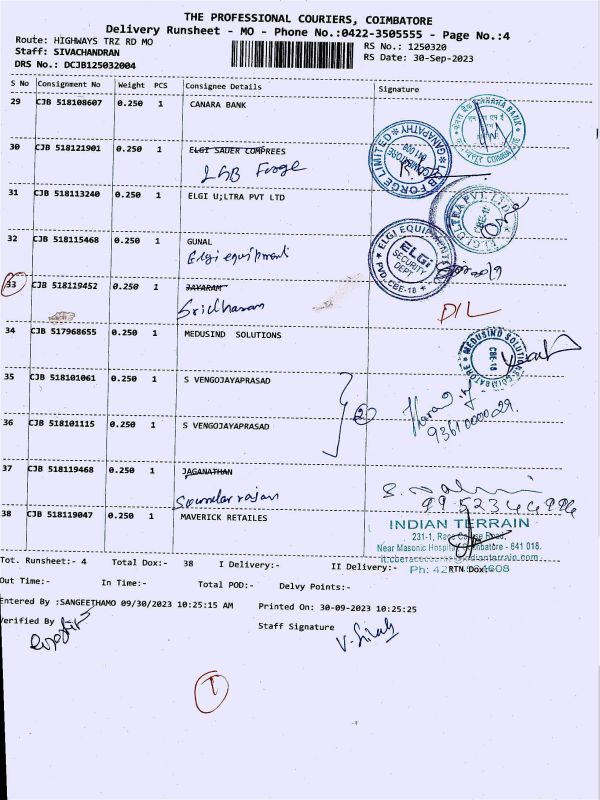 THE PROFESSIONAL COURIERS, COIMBATORE
Delivery Runsheet - MO - Phone No.:0422-3505555 - Page No.:4
Route: HIGHWAYS TRZ RD MO
RS No.: 1250320
Staff: SIVACHANDRAN
RS Date: 30-Sep-2023
DRS No.: DCJB125032004
S No Consignment No Weight PCS Consignee Details Signature
29 CJB 518108607 0.250 1 CANARA BANK
30 CJB 518121901 0.250 1 ELGI SAUER COMPREES
LGB Forge
LGB FORGE LIMITED GANAPATHY
31 CJB 518113240 0.250 1 ELGI U;LTRA PVT LTD
32 CJB 518115468 0.250 1 GUNAL
Elgi equipment
ELGI SECURITY DEPT.
33 CJB 518119452 0.250 1 JAYARAM
Sridharan
D/L
34 CJB 517968655 0.250 1 MEDUSIND SOLUTIONS
MEDUSIND SOLUTIONS COIMBATORE CBE-18
35 CJB 518101061 0.250 1 S VENGOJAYAPRASAD
2
36 CJB 518101115 0.250 1 S VENGOJAYAPRASAD
37 CJB 518119468 0.250 1 JAGANATHAN
Soundar rajan
38 CJB 518119047 0.250 1 MAVERICK RETAILES
INDIAN TERRAIN
231-1, Race Course Road,
Near Masonic Hospital Coimbatore - 641 018.
Tot. Runsheet:- 4 Total Dox:- 38 I Delivery:- II Delivery:- RTN Dox:-
Out Time:- In Time:- Total POD:- Delvy Points:-
Entered By :SANGEETHAMO 09/30/2023 10:25:15 AM Printed On: 30-09-2023 10:25:25
Verified By
Staff Signature
V. Sivah
T